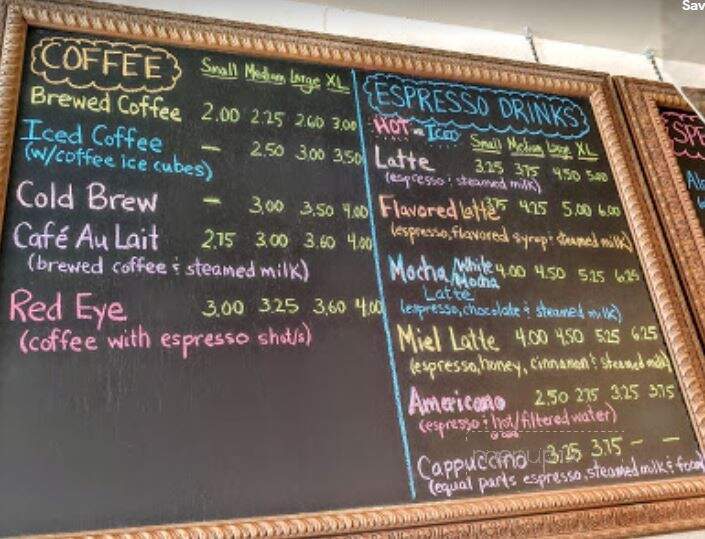 Sav
COFFEE
Small Medium Large XL
Brewed Coffee 2.00 2.25 2.60 3.00
Iced Coffee — 2.50 3.00 3.50
(w/coffee ice cubes)
Cold Brew — 3.00 3.50 4.00
Café Au Lait 2.75 3.00 3.60 4.00
(brewed coffee & steamed milk)
Red Eye 3.00 3.25 3.60 4.00
(coffee with espresso shot/s)
ESPRESSO DRINKS
HOT or ICED
Small Medium Large XL
Latte 3.25 3.75 4.50 5.00
(espresso & steamed milk)
Flavored latte 3.75 4.25 5.00 6.00
(espresso, flavored syrup & steamed milk)
Mocha/White Mocha 4.00 4.50 5.25 6.25
Latte
(espresso, chocolate & steamed milk)
Miel Latte 4.00 4.50 5.25 6.25
(espresso, honey, cinnamon & steamed milk)
Americano 2.50 2.75 3.25 3.75
(espresso & hot/filtered water)
or cold
Cappuccino 3.25 3.75 — —
(equal parts espresso, steamed milk & foam)
SPE